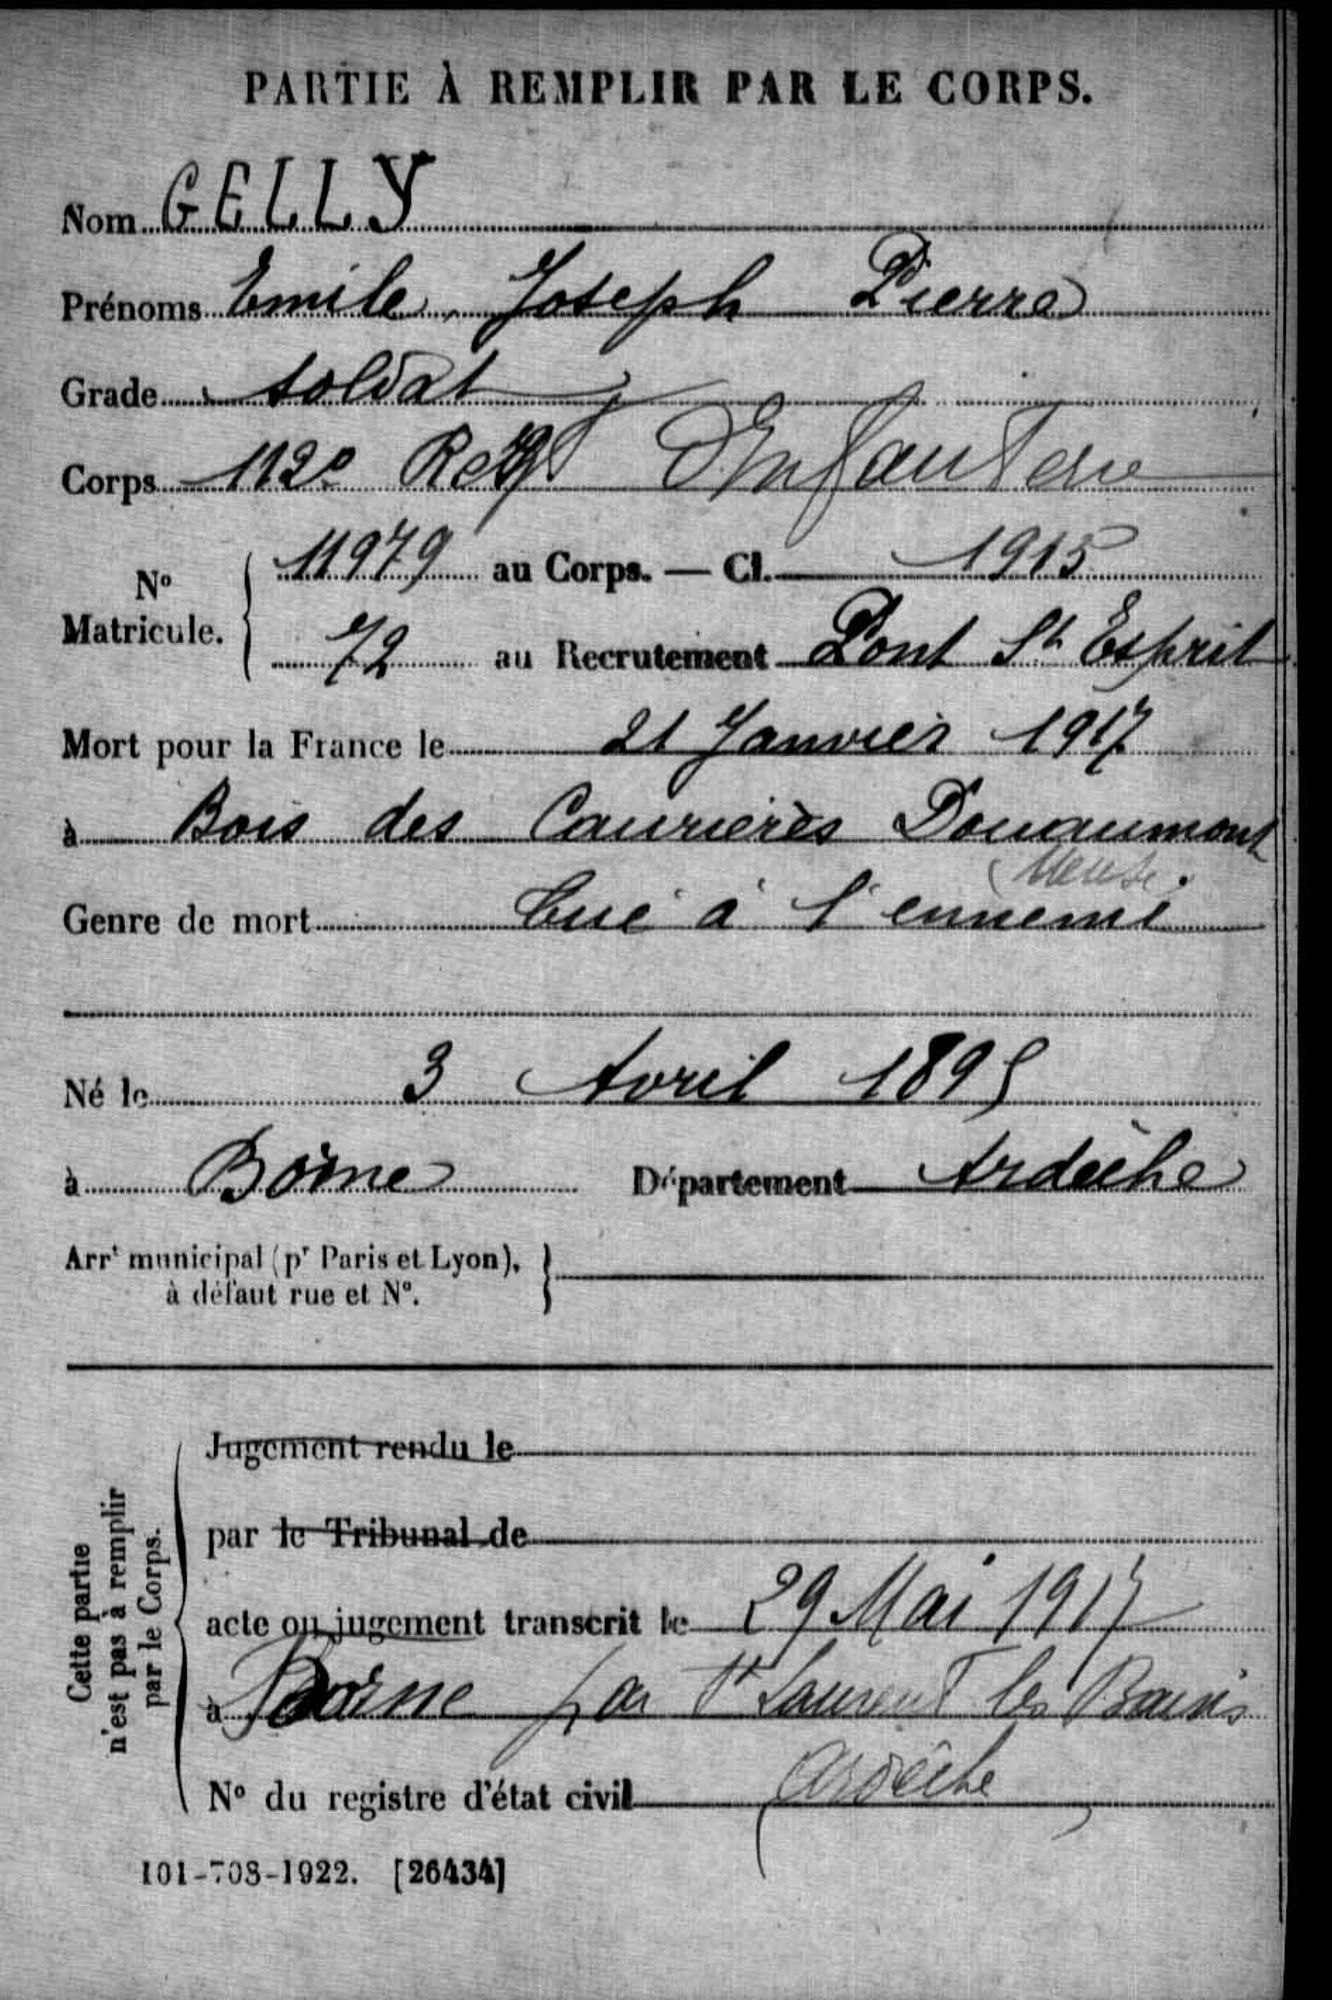 PARTIE À REMPLIR PAR LE CORPS.
Nom GELLY
Prénoms Emile, Joseph Pierre
Grade soldat
Corps 112e Regt D'Infanterie
No Matricule. 11979 au Corps. — Cl. 1915
72 au Recrutement Pont St Esprit
Mort pour la France le 21 Janvier 1917
à Bois des Caurières Douaumont
(Meuse)
Genre de mort tué à l'ennemi
Né le 3 Avril 1895
à Borne Département Ardèche
Arrt municipal (pr Paris et Lyon),
à défaut rue et No.
Cette partie
n'est pas à remplir
par le Corps.
Jugement rendu le
par le Tribunal de
acte ou jugement transcrit le 29 Mai 1917
à Borne par St Laurent les Bains
Ardèche
No du registre d'état civil
101-708-1922. [26434]